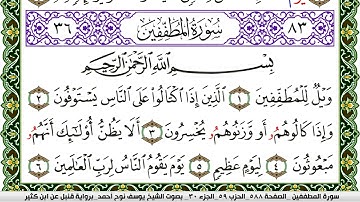 ٣٦ سُورَةُ الْمُطَفِّفِينَ ٨٣
بِسْمِ اللَّهِ الرَّحْمَٰنِ الرَّحِيمِ
وَيْلٌ لِّلْمُطَفِّفِينَ ١ الَّذِينَ إِذَا اكْتَالُوا عَلَى النَّاسِ يَسْتَوْفُونَ ٢
وَإِذَا كَالُوهُمُ أَو وَّزَنُوهُمُ يُخْسِرُونَ ٣ أَلَا يَظُنُّ أُولَٰئِكَ أَنَّهُمُ
مَبْعُوثُونَ ٤ لِيَوْمٍ عَظِيمٍ ٥ يَوْمَ يَقُومُ النَّاسُ لِرَبِّ الْعَالَمِينَ ٦
سورة المطففين _الصفحة ٥٨٨_ الحزب ٥٩_ الجزء ٣٠_ بصوت الشيخ يوسف نوح أحمد_ برواية قنبل عن ابن كثير